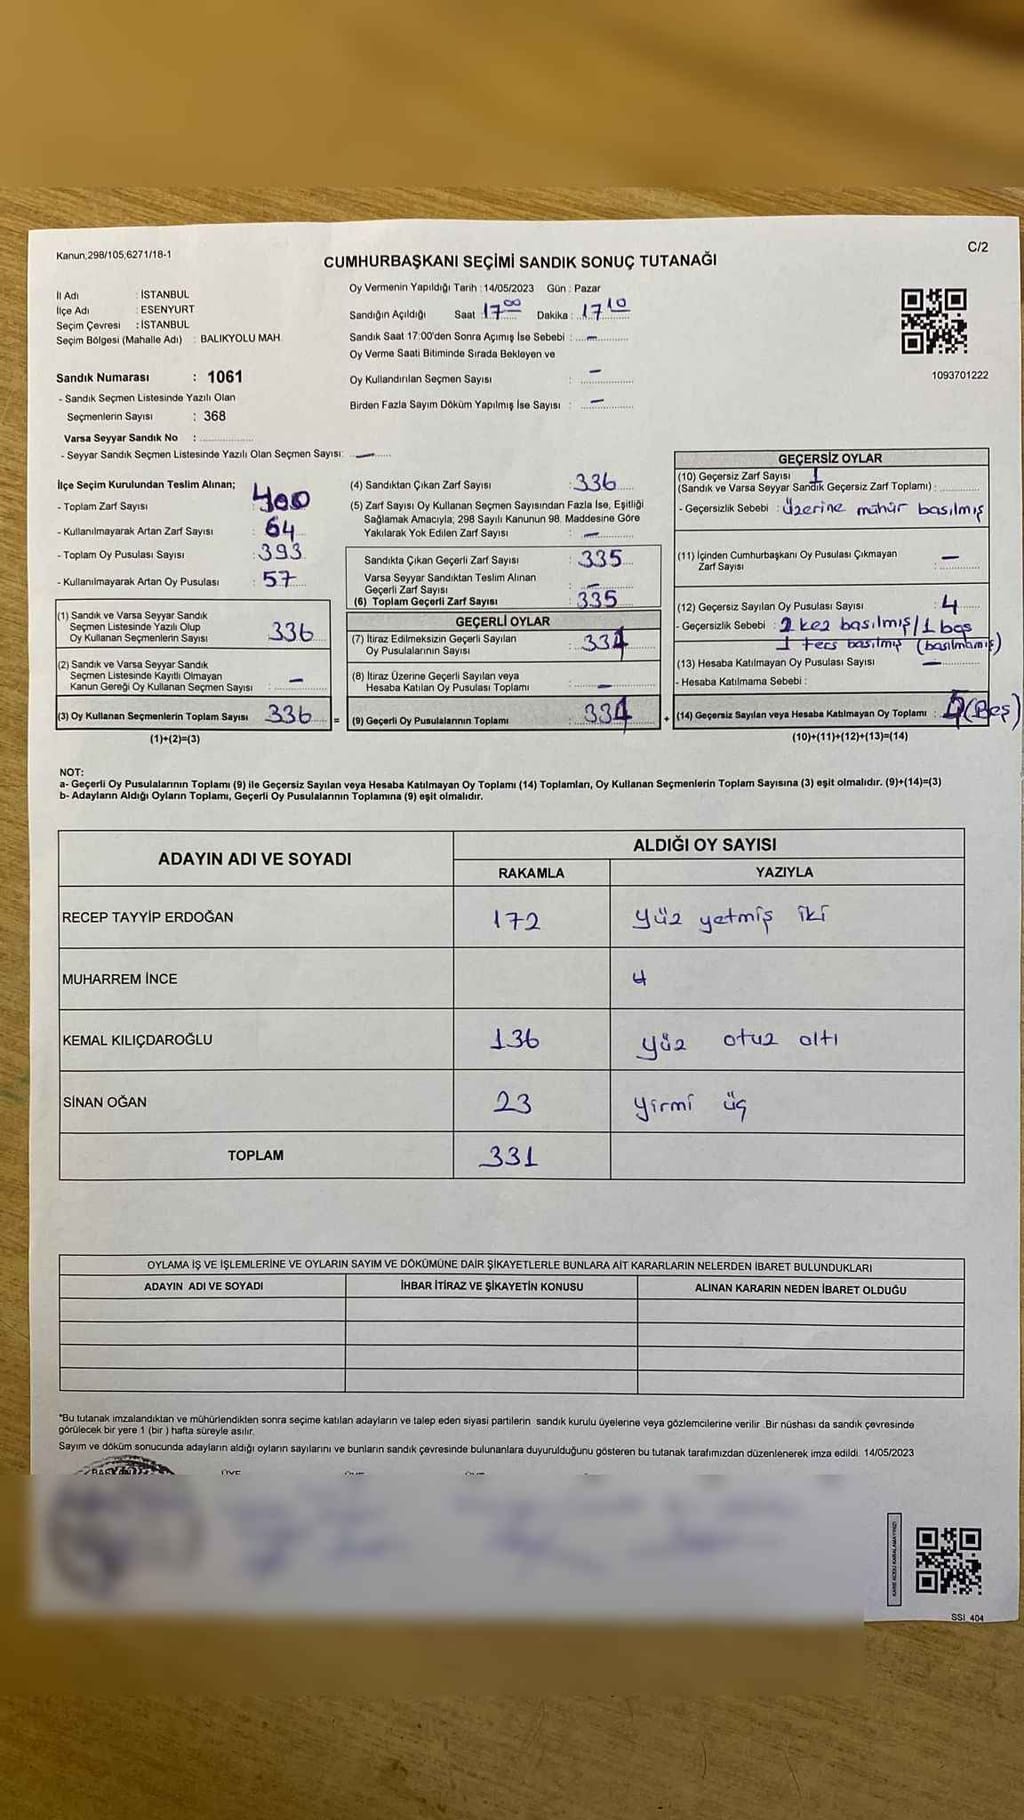 Kanun,298/105,6271/18-1
C/2
CUMHURBAŞKANI SEÇİMİ SANDIK SONUÇ TUTANAĞI
İl Adı : İSTANBUL
İlçe Adı : ESENYURT
Seçim Çevresi : İSTANBUL
Seçim Bölgesi (Mahalle Adı) : BALIKYOLU MAH.
Oy Vermenin Yapıldığı Tarih : 14/05/2023 Gün : Pazar
Sandığın Açıldığı Saat : 17 00 Dakika : 17 10
Sandık Saat 17:00'den Sonra Açımış İse Sebebi : –
Oy Verme Saati Bitiminde Sırada Bekleyen ve
Oy Kullandırılan Seçmen Sayısı : –
Birden Fazla Sayım Döküm Yapılmış İse Sayısı : –
1093701222
Sandık Numarası : 1061
- Sandık Seçmen Listesinde Yazılı Olan
Seçmenlerin Sayısı : 368
Varsa Seyyar Sandık No :
- Seyyar Sandık Seçmen Listesinde Yazılı Olan Seçmen Sayısı: –
İlçe Seçim Kurulundan Teslim Alınan;
- Toplam Zarf Sayısı : 400
- Kullanılmayarak Artan Zarf Sayısı : 64
- Toplam Oy Pusulası Sayısı : 393
- Kullanılmayarak Artan Oy Pusulası : 57
(1) Sandık ve Varsa Seyyar Sandık
Seçmen Listesinde Yazılı Olup
Oy Kullanan Seçmenlerin Sayısı : 336
(2) Sandık ve Varsa Seyyar Sandık
Seçmen Listesinde Kayıtlı Olmayan
Kanun Gereği Oy Kullanan Seçmen Sayısı : –
(3) Oy Kullanan Seçmenlerin Toplam Sayısı : 336 =
(1)+(2)=(3)
(4) Sandıktan Çıkan Zarf Sayısı : 336
(5) Zarf Sayısı Oy Kullanan Seçmen Sayısından Fazla İse, Eşitliği
Sağlamak Amacıyla; 298 Sayılı Kanunun 98. Maddesine Göre
Yakılarak Yok Edilen Zarf Sayısı : –
Sandıkta Çıkan Geçerli Zarf Sayısı : 335
Varsa Seyyar Sandıktan Teslim Alınan
Geçerli Zarf Sayısı : –
(6) Toplam Geçerli Zarf Sayısı : 335
GEÇERLİ OYLAR
(7) İtiraz Edilmeksizin Geçerli Sayılan
Oy Pusulalarının Sayısı : 331
(8) İtiraz Üzerine Geçerli Sayılan veya
Hesaba Katılan Oy Pusulası Toplamı : –
(9) Geçerli Oy Pusulalarının Toplamı : 331 +
GEÇERSİZ OYLAR
(10) Geçersiz Zarf Sayısı 1
(Sandık ve Varsa Seyyar Sandık Geçersiz Zarf Toplamı) :
- Geçersizlik Sebebi : Üzerine mühür basılmış
(11) İçinden Cumhurbaşkanı Oy Pusulası Çıkmayan
Zarf Sayısı : –
(12) Geçersiz Sayılan Oy Pusulası Sayısı : 4
- Geçersizlik Sebebi : 2 kez basılmış / 1 boş
1 ters basılmış (basılmamış)
(13) Hesaba Katılmayan Oy Pusulası Sayısı : –
- Hesaba Katılmama Sebebi :
(14) Geçersiz Sayılan veya Hesaba Katılmayan Oy Toplamı : 5 (Beş)
(10)+(11)+(12)+(13)=(14)
NOT:
a- Geçerli Oy Pusulalarının Toplamı (9) ile Geçersiz Sayılan veya Hesaba Katılmayan Oy Toplamı (14) Toplamları, Oy Kullanan Seçmenlerin Toplam Sayısına (3) eşit olmalıdır. (9)+(14)=(3)
b- Adayların Aldığı Oyların Toplamı, Geçerli Oy Pusulalarının Toplamına (9) eşit olmalıdır.
ADAYIN ADI VE SOYADI
ALDIĞI OY SAYISI
RAKAMLA YAZIYLA
RECEP TAYYİP ERDOĞAN 172 yüz yetmiş iki
MUHARREM İNCE 4
KEMAL KILIÇDAROĞLU 136 yüz otuz altı
SİNAN OĞAN 23 yirmi üç
TOPLAM 331
OYLAMA İŞ VE İŞLEMLERİNE VE OYLARIN SAYIM VE DÖKÜMÜNE DAİR ŞİKAYETLERLE BUNLARA AİT KARARLARIN NELERDEN İBARET BULUNDUKLARI
ADAYIN ADI VE SOYADI İHBAR İTİRAZ VE ŞİKAYETİN KONUSU ALINAN KARARIN NEDEN İBARET OLDUĞU
*Bu tutanak imzalandıktan ve mühürlendikten sonra seçime katılan adayların ve talep eden siyasi partilerin sandık kurulu üyelerine veya gözlemcilerine verilir .Bir nüshası da sandık çevresinde
görülecek bir yere 1 (bir ) hafta süreyle asılır.
Sayım ve döküm sonucunda adayların aldığı oyların sayılarını ve bunların sandık çevresinde bulunanlara duyurulduğunu gösteren bu tutanak tarafımızdan düzenlenerek imza edildi. 14/05/2023
SSI_404